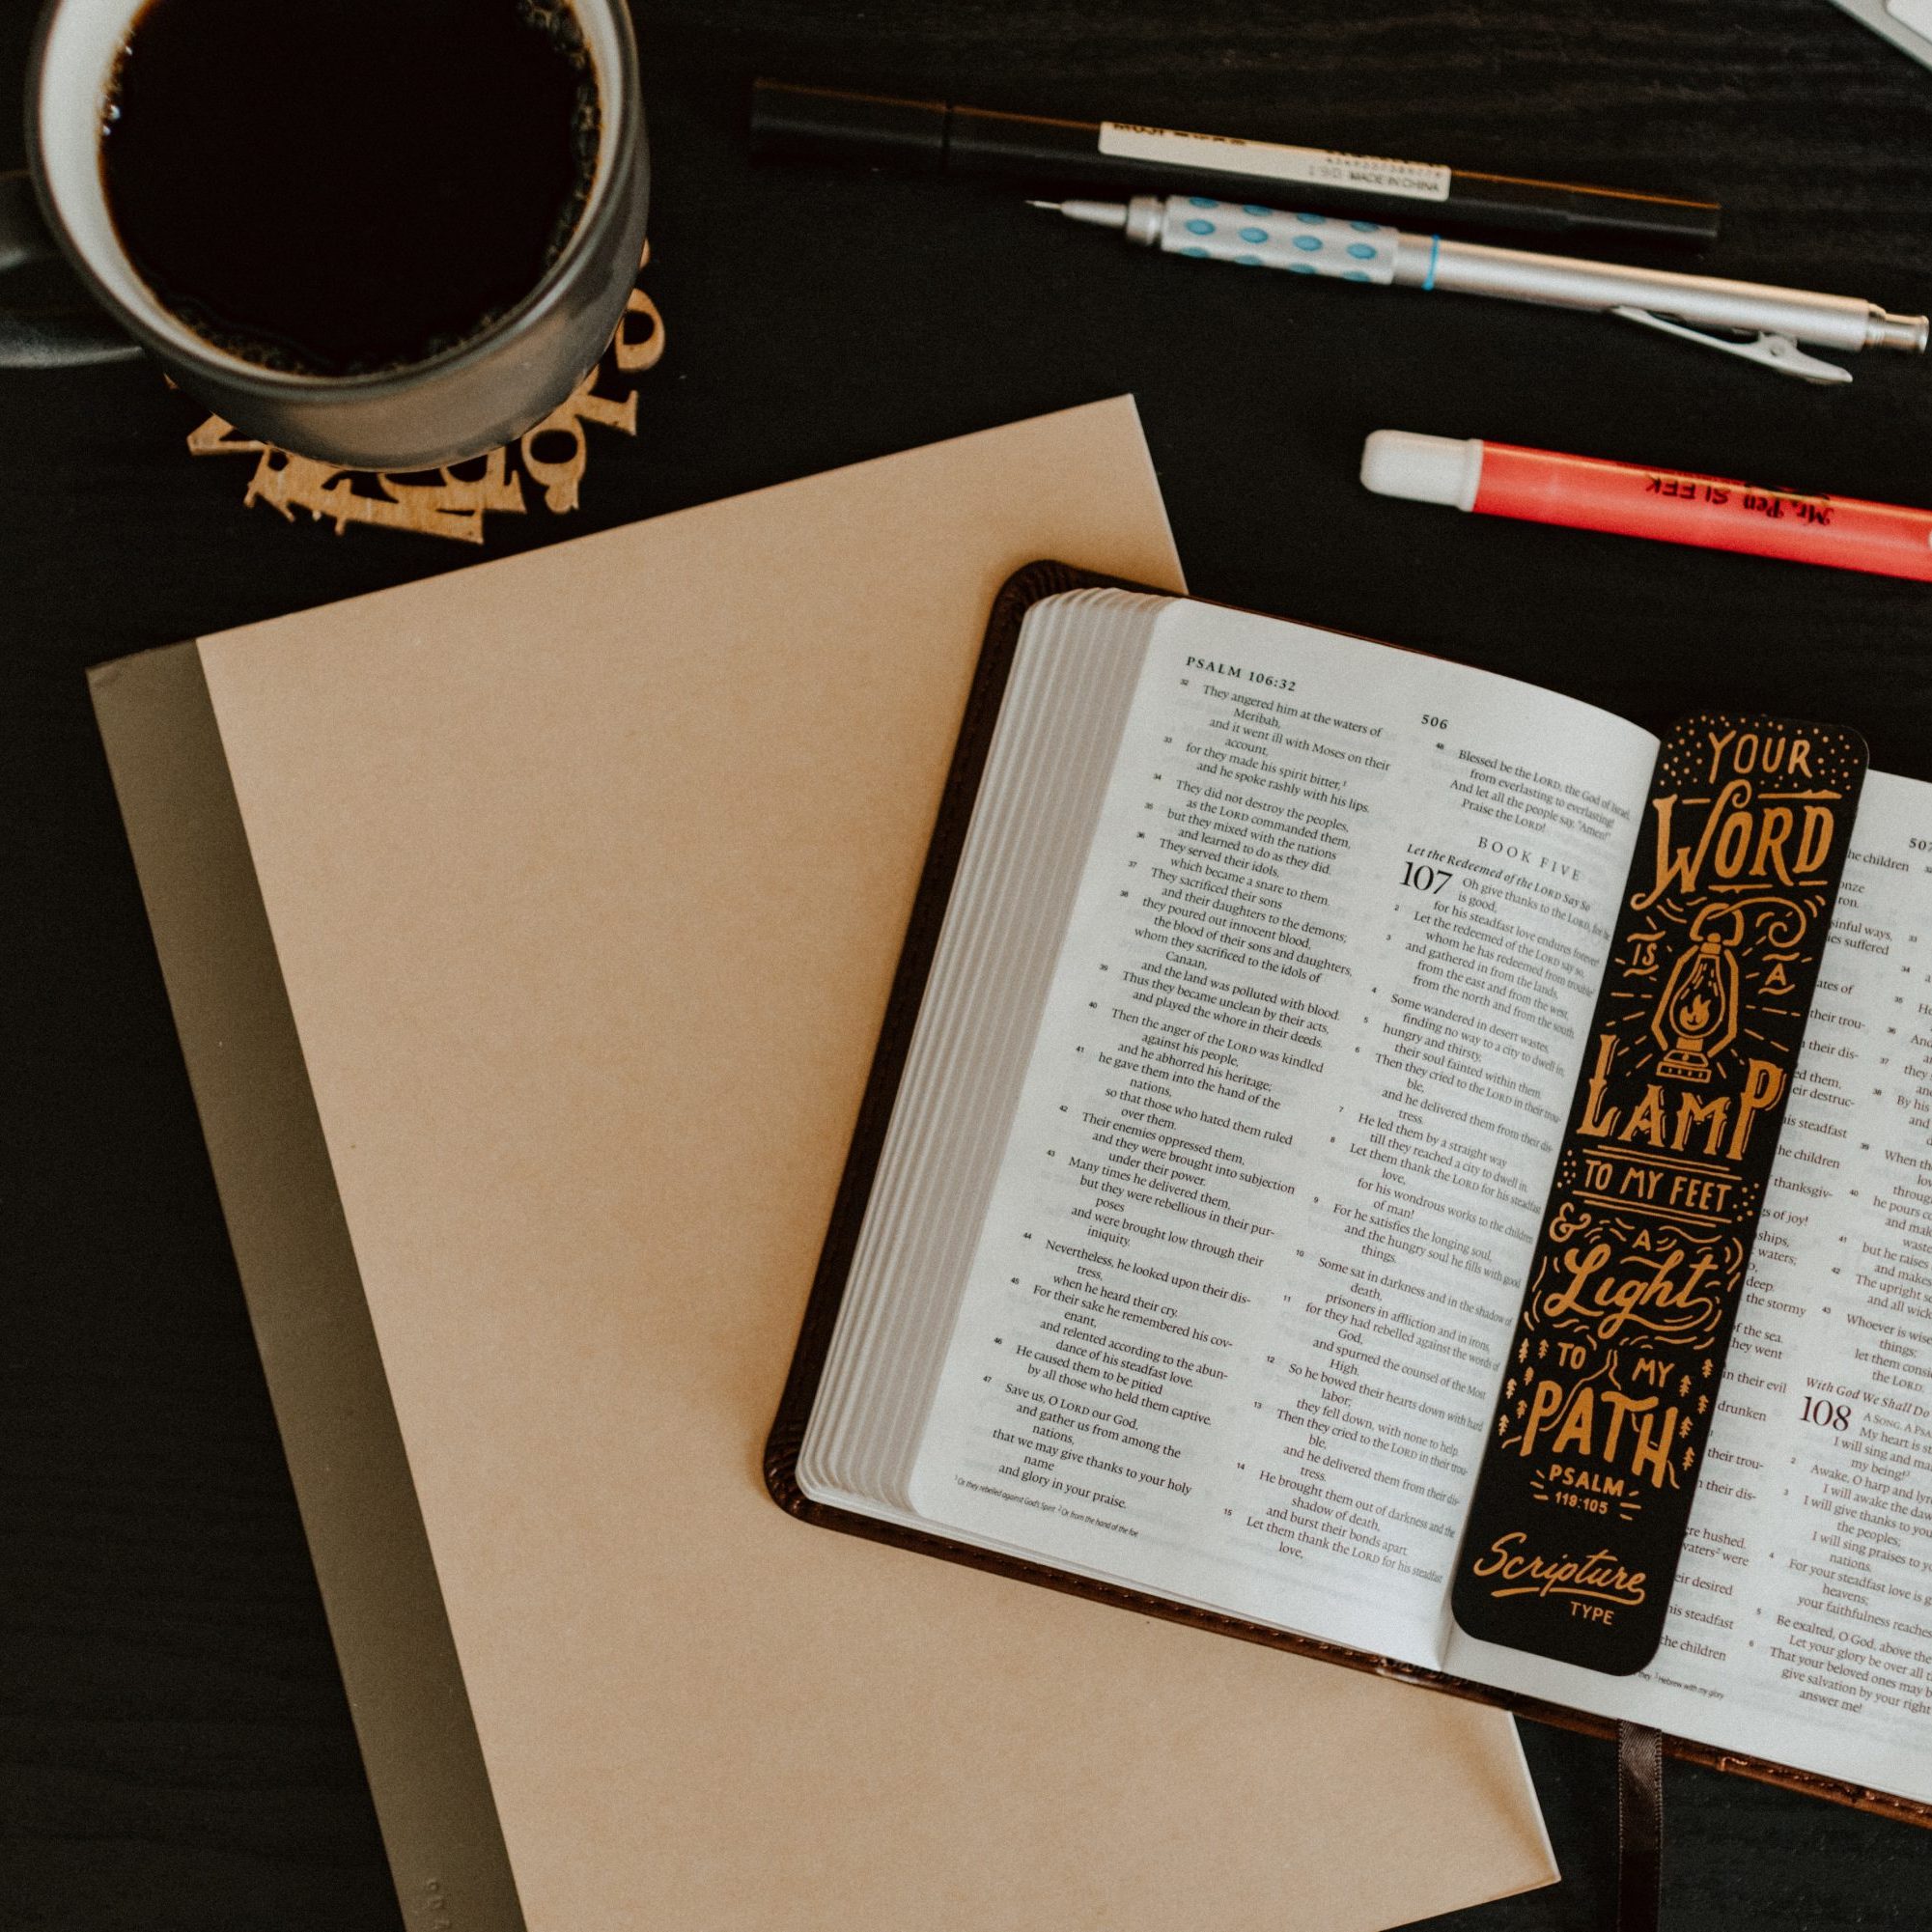 MADE IN CHINA
Mr. Pen SLEEK
PSALM 106:32
506
32 They angered him at the waters of
Meribah,
and it went ill with Moses on their
account,
33 for they made his spirit bitter,1
and he spoke rashly with his lips.
34 They did not destroy the peoples,
as the LORD commanded them,
35 but they mixed with the nations
and learned to do as they did.
36 They served their idols,
which became a snare to them.
37 They sacrificed their sons
and their daughters to the demons;
38 they poured out innocent blood,
the blood of their sons and daughters,
whom they sacrificed to the idols of
Canaan,
and the land was polluted with blood.
39 Thus they became unclean by their acts,
and played the whore in their deeds.
40 Then the anger of the LORD was kindled
against his people,
and he abhorred his heritage;
41 he gave them into the hand of the
nations,
so that those who hated them ruled
over them.
42 Their enemies oppressed them,
and they were brought into subjection
under their power.
43 Many times he delivered them,
but they were rebellious in their pur-
poses
and were brought low through their
iniquity.
44 Nevertheless, he looked upon their dis-
tress,
when he heard their cry.
45 For their sake he remembered his cov-
enant,
and relented according to the abun-
dance of his steadfast love.
46 He caused them to be pitied
by all those who held them captive.
47 Save us, O LORD our God,
and gather us from among the
nations,
that we may give thanks to your holy
name
and glory in your praise.
1 Or they rebelled against God's Spirit 2 Or from the hand of the foe
48 Blessed be the LORD, the God of Israel,
from everlasting to everlasting!
And let all the people say, "Amen!"
Praise the LORD!
BOOK FIVE
Let the Redeemed of the LORD Say So
107 Oh give thanks to the LORD, for he
is good,
for his steadfast love endures forever!
2 Let the redeemed of the LORD say so,
whom he has redeemed from trouble
3 and gathered in from the lands,
from the east and from the west,
from the north and from the south.
4 Some wandered in desert wastes,
finding no way to a city to dwell in;
5 hungry and thirsty,
their soul fainted within them.
6 Then they cried to the LORD in their trou-
ble,
and he delivered them from their dis-
tress.
7 He led them by a straight way
till they reached a city to dwell in.
8 Let them thank the LORD for his steadfast
love,
for his wondrous works to the children
of man!
9 For he satisfies the longing soul,
and the hungry soul he fills with good
things.
10 Some sat in darkness and in the shadow of
death,
prisoners in affliction and in irons,
11 for they had rebelled against the words of
God,
and spurned the counsel of the Most
High.
12 So he bowed their hearts down with hard
labor;
they fell down, with none to help.
13 Then they cried to the LORD in their trou-
ble,
and he delivered them from their dis-
tress.
14 He brought them out of darkness and the
shadow of death,
and burst their bonds apart.
15 Let them thank the LORD for his steadfast
love,
YOUR
WORD
IS A
LAMP
TO MY FEET
& A
Light
TO MY
PATH
PSALM
119:105
Scripture
TYPE
507
he children
sinful ways,
suffered
ates of
their trou-
their dis-
ed them,
destruc-
his steadfast
he children
thanksgiv-
of joy!
ships,
waters;
deep.
the stormy
of the sea.
they went
in their evil
drunken
their trou-
their dis-
hushed.
waters2 were
desired
his steadfast
the children
With God We Shall Do
108 A SONG. A PSA
My heart is st
I will sing and ma
my being!
2 Awake, O harp and lyr
I will awake the daw
3 I will give thanks to you
the peoples;
I will sing praises to yo
nations.
4 For your steadfast love is g
heavens;
your faithfulness reaches
5 Be exalted, O God, above the
Let your glory be over all t
6 That your beloved ones may b
give salvation by your right
answer me!